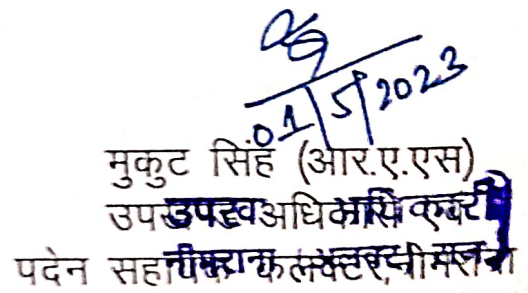 01/5/2023
मुकुट सिंह (आर.ए.एस)
उपखण्ड अधिकारी एवं
पदेन सहायक कलक्टर, नीमराना